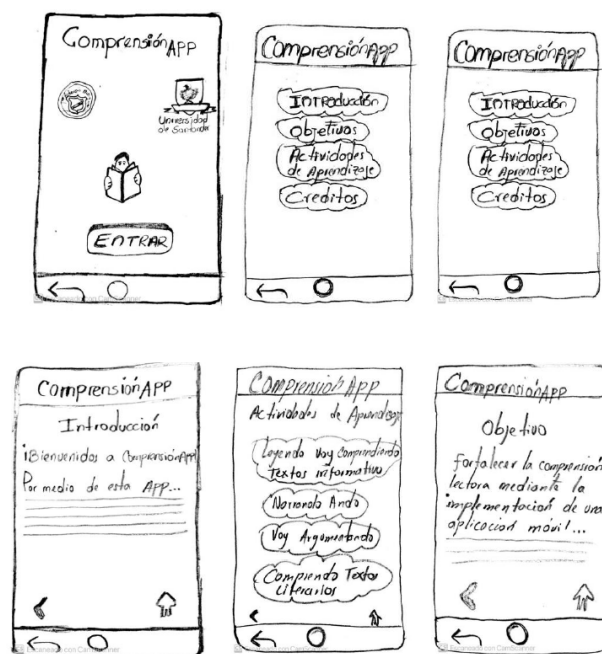 ComprensiónAPP
Universidad
de Santander
ENTRAR
Escaneado con CamScanner
ComprensiónAPP
INTRODUCCIÓN
Objetivos
Actividades
de Aprendizaje
Creditos
ComprensiónAPP
INTRODUCCIÓN
Objetivos
Actividades
de Aprendizaje
Creditos
ComprensiónAPP
Introducción
¡Bienvenidos a ComprensiónAPP!
Por medio de esta APP...
Escaneado con CamScanner
Comprensión App
Actividades de Aprendizaje
Leyendo Voy Comprendiendo
Textos informativo
Narrando Ando
Voy Argumentando
Comprendo Textos
Literarios
Escaneado con CamScanner
ComprensiónAPP
Objetivo
fortalecer la comprensión
lectora mediante la
implementación de una
aplicación móvil...
Escaneado con CamScanner